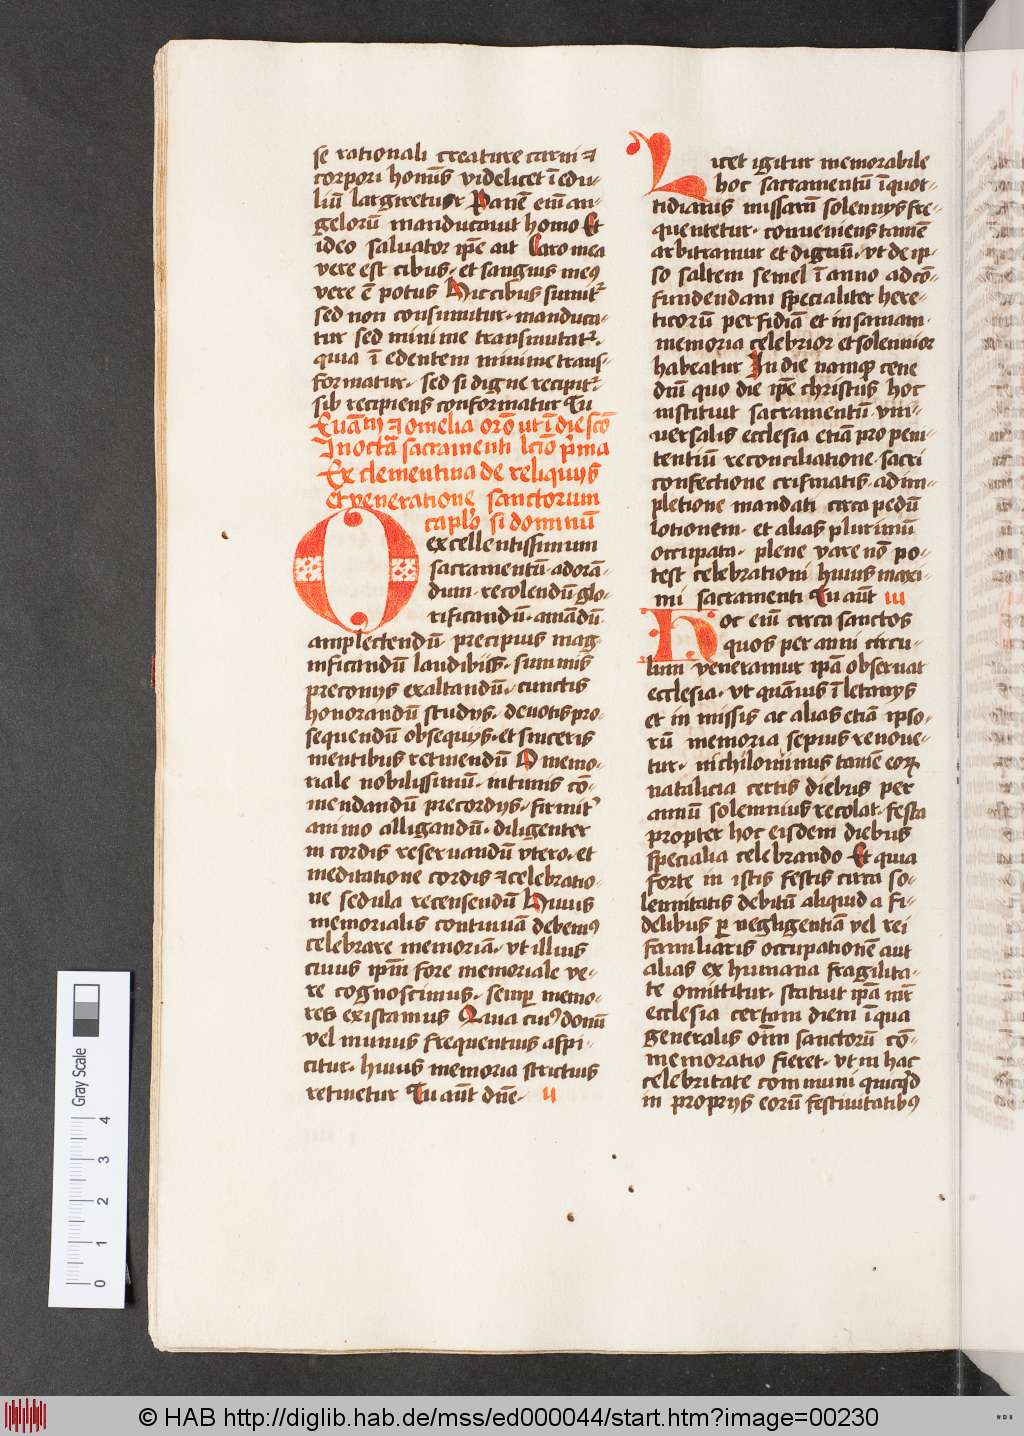 se rationali creature carni ⁊
corpori homīs videlicet ī edu-
liū largiretur Panē em̄ an-
gelorū manducauit homo Et
ideo saluator ip̄e ait Caro mea
vere est cibus. et sanguis meꝰ
vere ē potus Hic cibus sumit᷑
sed non consumitur. manduca-
tur sed minime transmutat᷑.
quia ī edentem minime trans-
formatur. sed si digne recipit᷑
sib recipiens conformatur Tu
Euāᵐ ⁊ omelia orō ut ī die scō
In octā sacramenti lctō pͥma
Ex clementina de reliquijs
et veneratione sanctorum
cāpło si dominū
O excellentissimum
sacramentū. adorā-
dum. recolendū glo-
rificandū. amādū.
amplectendū. precipuis mag-
nificandū laudibus. summis
preconijs exaltandū. cunctis
honorandū studijs. deuotis pro-
sequendū obsequijs. et sinceris
mentibus retinendū O memo-
riale nobilissimū. intimis cō-
mendandū precordijs. firmit᷑
animo alligandū. diligenter
in cordis reseruandū vtero. et
meditatione cordis ⁊ celebratio-
ne sedula recensendū Huius
memorialis continuā debemꝰ
celebrare memoriā. vt illius
cuius ip̄m fore memoriale ve-
re cognoscimus. semꝑ memo-
res existamus Quia cuiꝰ donū
vel munus frequentius aspi-
citur. huius memoria strictius
retinetur Tu aūt dn̄e. ij
Licet igitur memorabile
hoc sacramentū ī quot-
tidianis missarū solennijs fre-
quentetur. conueniens tamē
arbitramur et dignū. vt de ip-
so saltem semel ī anno ad cō-
fundendam specialiter here-
ticorū perfidiā et insaniam.
memoria celebrior et solennior
habeatur In die namqꝫ cene
dn̄i quo die ip̄e christus hoc
instituit sacramentū. vni-
uersalis ecclesia etiā pro peni-
tentiū reconciliatione. sacri
confectione crismatis. adim-
pletione mandati circa pedū
lotionem. et alias plurimū
occupata. plene vacare nō po-
test celebrationi huius maxi-
mi sacramenti Tu aūt iij
Hoc em̄ circa sanctos
quos per anni circu-
lum veneramur ip̄a obseruat
ecclesia. vt quāuis ī letanijs
et in missis ac alias etiā ipso-
rū memoria sepius renoue-
tur. nichilominus tamē eoꝝ
natalicia certis diebus per
annū solemnius recolat. festa
propter hoc eisdem diebus
specialia celebrando Et quia
forte in istis festis circa so-
lennitatis debitū aliquid a fi-
delibus ꝑ negligentiā vel rei
familiaris occupationē aut
alias ex humana fragilita-
te omittitur. statuit ip̄a mr̄
ecclesia certam diem ī qua
generalis om̄i sanctorū cō-
memoratio fieret. vt in hac
celebritate communi quicqͥd
in proprijs eorū festiuitatibꝰ
Gray Scale
0 1 2 3 4
© HAB http://diglib.hab.de/mss/ed000044/start.htm?image=00230